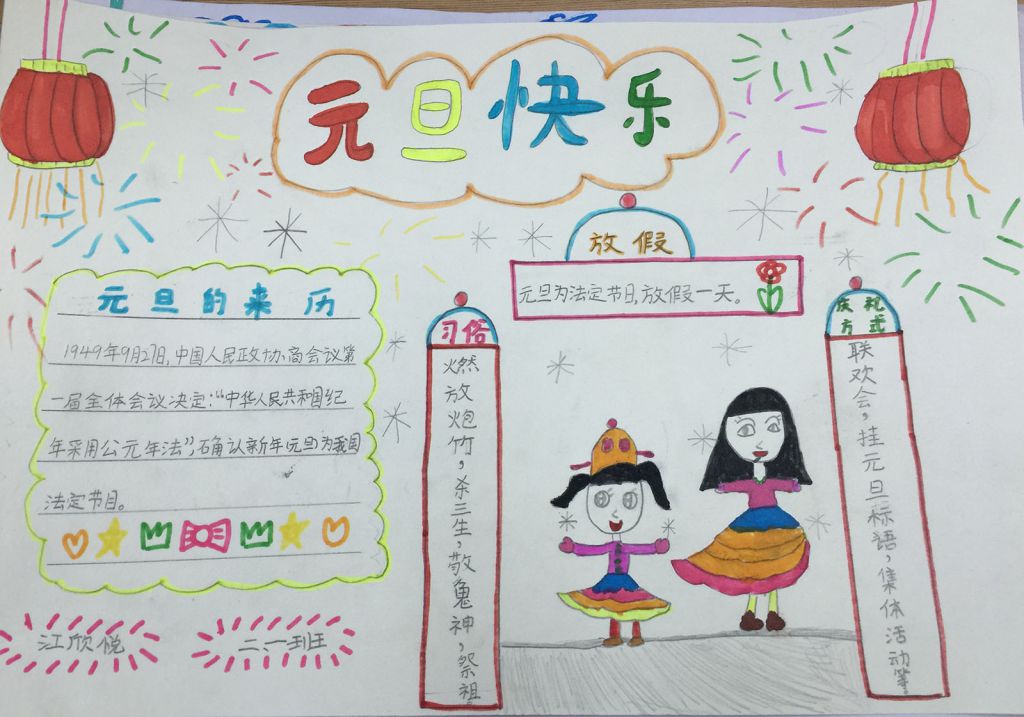 元旦快乐
放假
元旦为法定节日,放假一天。
元旦的来历
1949年9月27日,中国人民政协,商会议第
一届全体会议决定:“中华人民共和国纪
年采用公元年法”,确认新年元旦为我国
法定节日。
习俗
燃放炮竹,杀三生,敬鬼神,祭祖
庆礼
方式
联欢会,挂元旦标语,集体活动等
江欣悦
二、一班